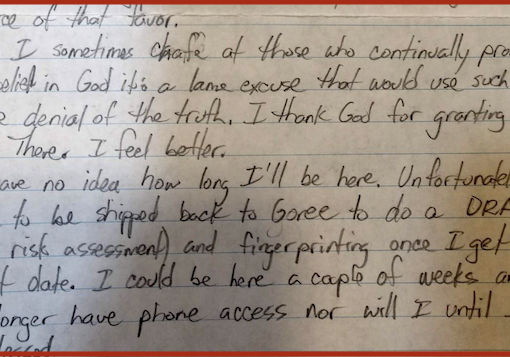 ce of that favor.
I sometimes chafe at those who continually pro
belief in God it's a lame excuse that would use such
e denial of the truth. I thank God for granting
There. I feel better.
ave no idea how long I'll be here. Unfortunatel
to be shipped back to Goree to do a DRA
risk assessment) and fingerprinting once I get
t date. I could be here a caple of weeks a
onger have phone access nor will I until